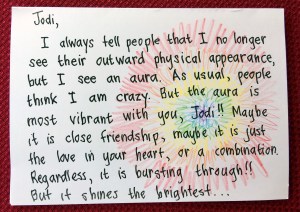 Jodi,
I always tell people that I no longer
see their outward physical appearance,
but I see an aura. As usual, people
think I am crazy. But the aura is
most vibrant with you, Jodi!! Maybe
it is close friendship, maybe it is just
the love in your heart, or a combination.
Regardless, it is bursting through!!
But it shines the brightest...